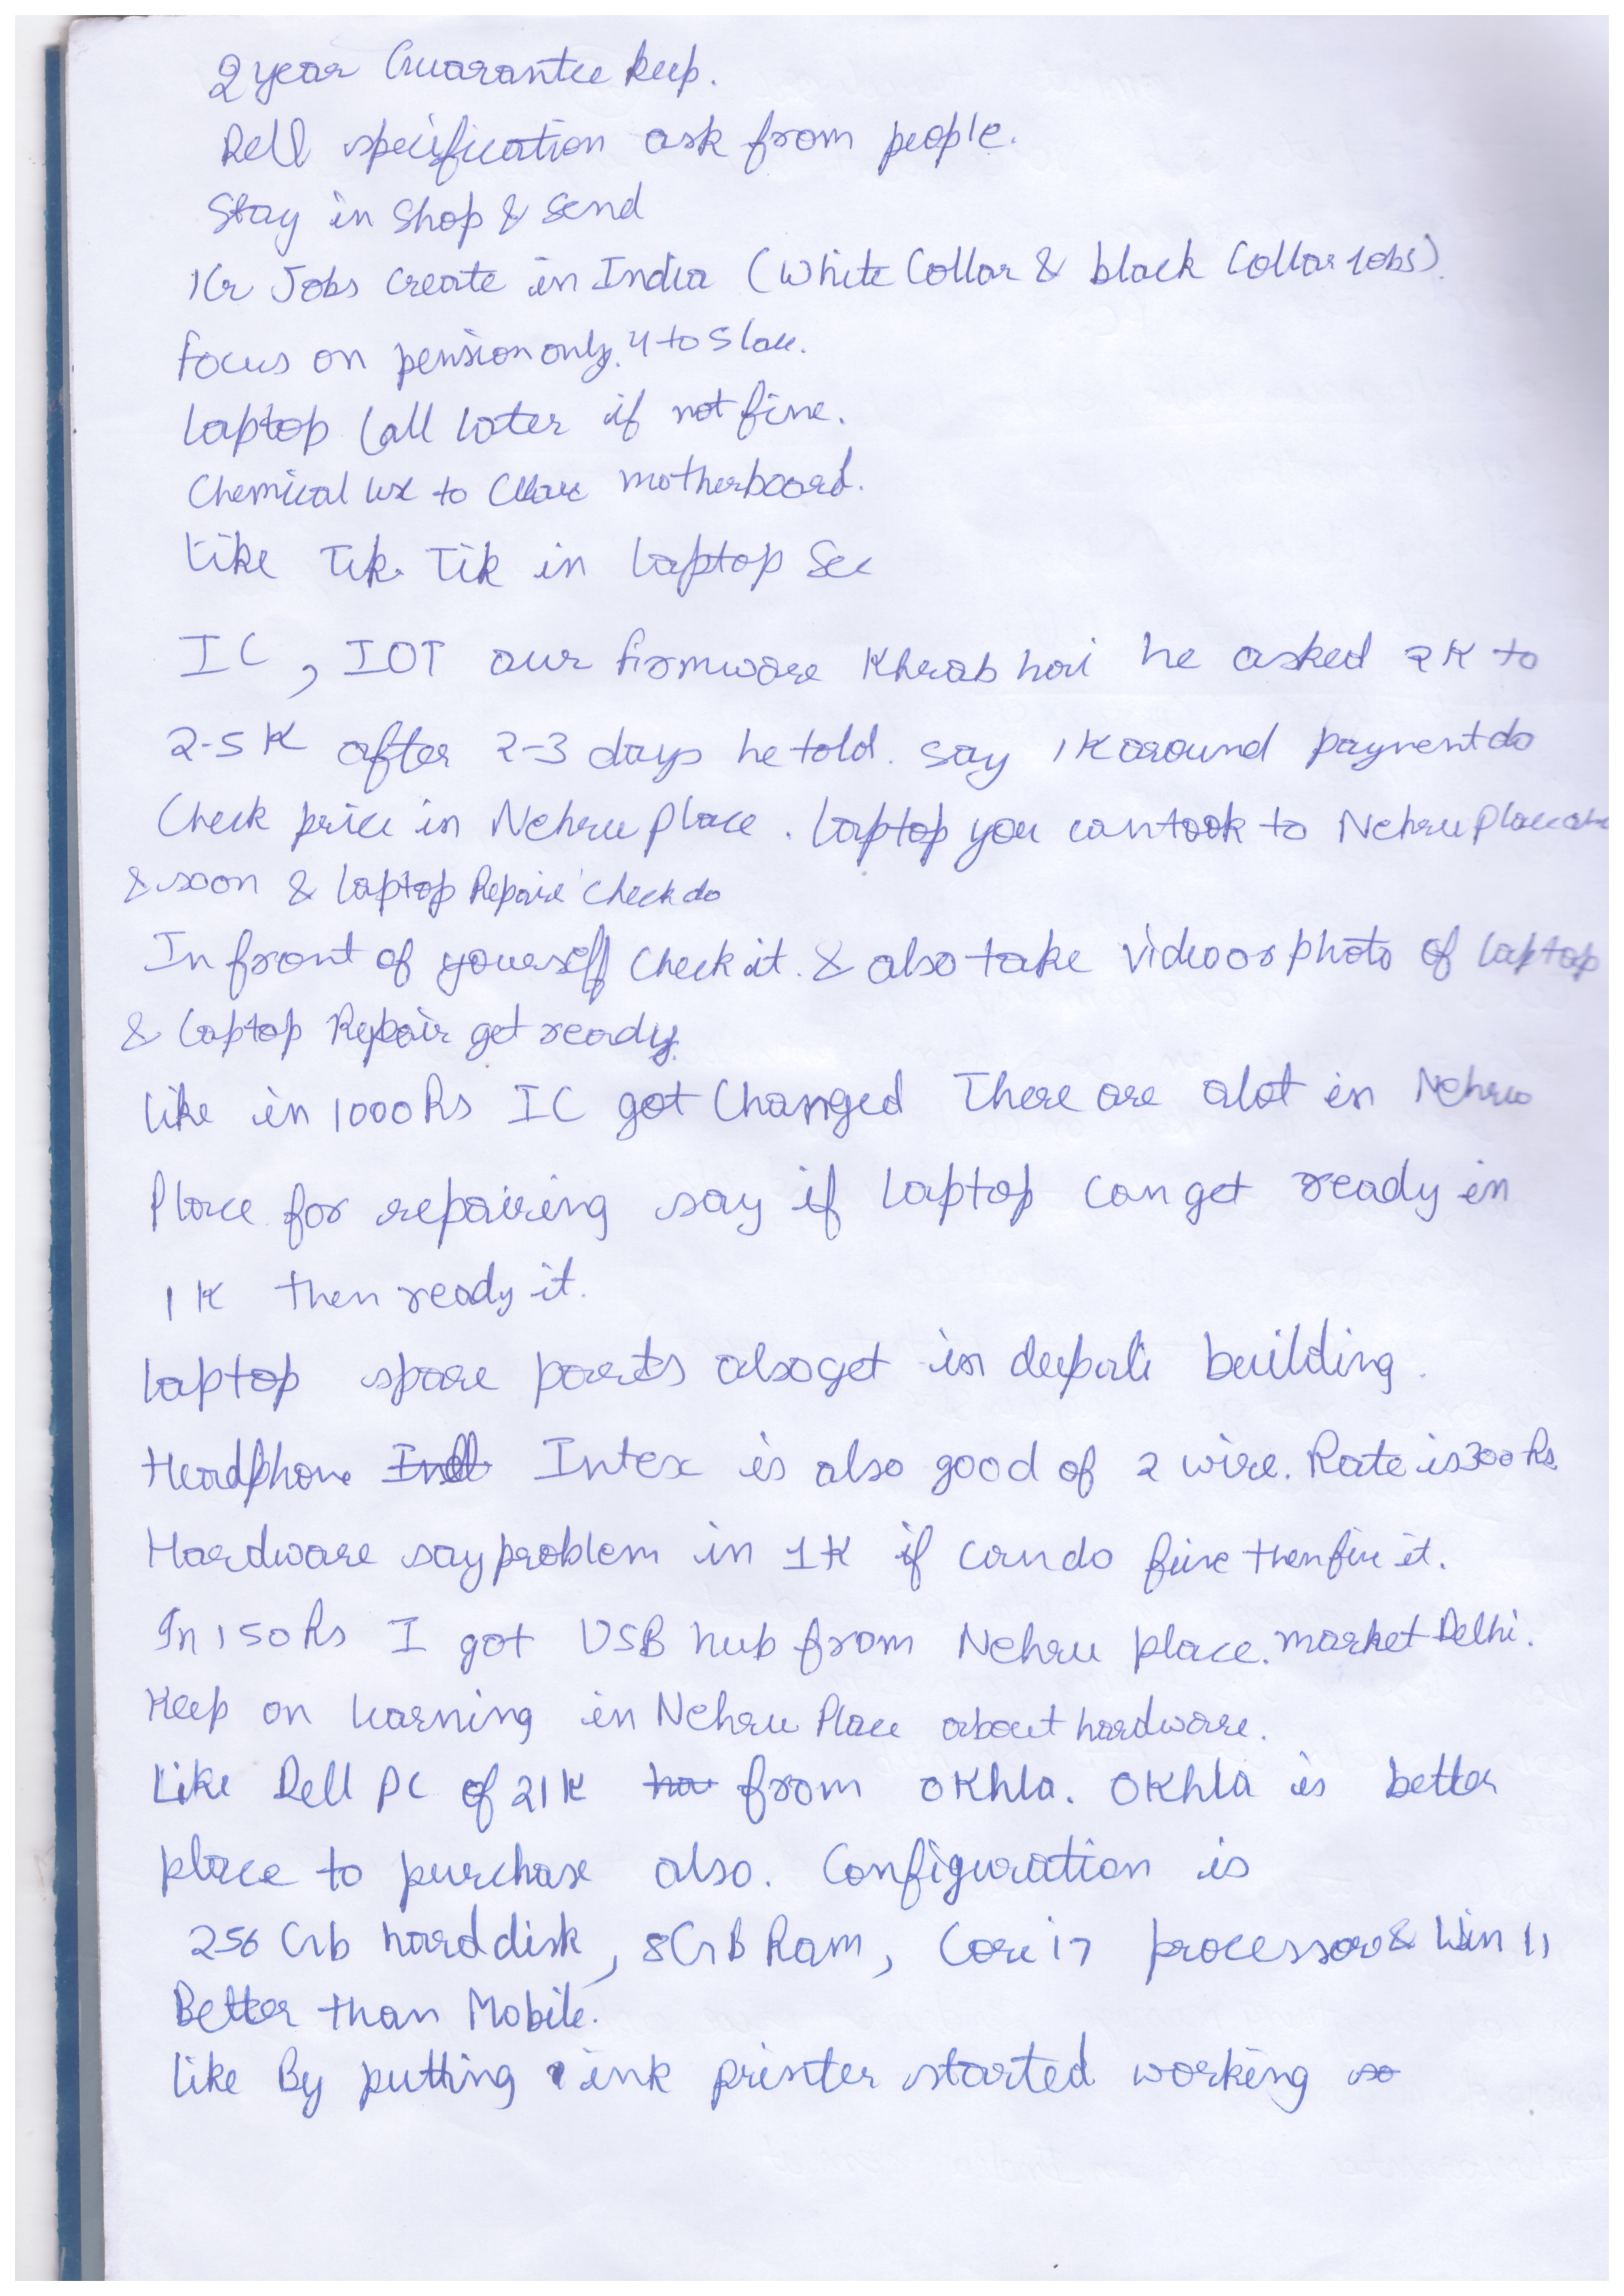 2 year Guarantee keep.
Dell specification ask from people.
Stay in Shop & Send
1Cr Jobs Create in India (White Collar & black Collar Jobs).
focus on pension only. 4 to 5 lac.
Laptop Call later if not fine.
Chemical use to motherboard.
Like Tik Tik in laptop See
IC, IOT our firmware Khrab hai he asked 2K to
2-5K after 2-3 days he told. say 1K around payment do
Check price in Nehru Place. laptop you can took to Nehru Place
& soon & laptop Repair Check do
In front of yourself Check it. & also take video or photo of laptop
& laptop Repair get ready.
like in 1000 Rs IC got Changed There are alot in Nehru
Place for repairing say if laptop can get ready in
1K then ready it.
laptop spare parts also get in deepali building.
Headphone Intex is also good of 2 wire. Rate is 300 Rs.
Hardware say problem in 1K if can do fine then fine it.
In 150 Rs I got USB hub from Nehru place. market Delhi.
Keep on learning in Nehru Place about hardware.
Like Dell PC of 21K from OKhla. OKhla is better
place to purchase also. Configuration is
256 Gb hard disk, 8GB Ram, Core i7 processor & Win 11
Better than Mobile.
like By putting ink printer started working so